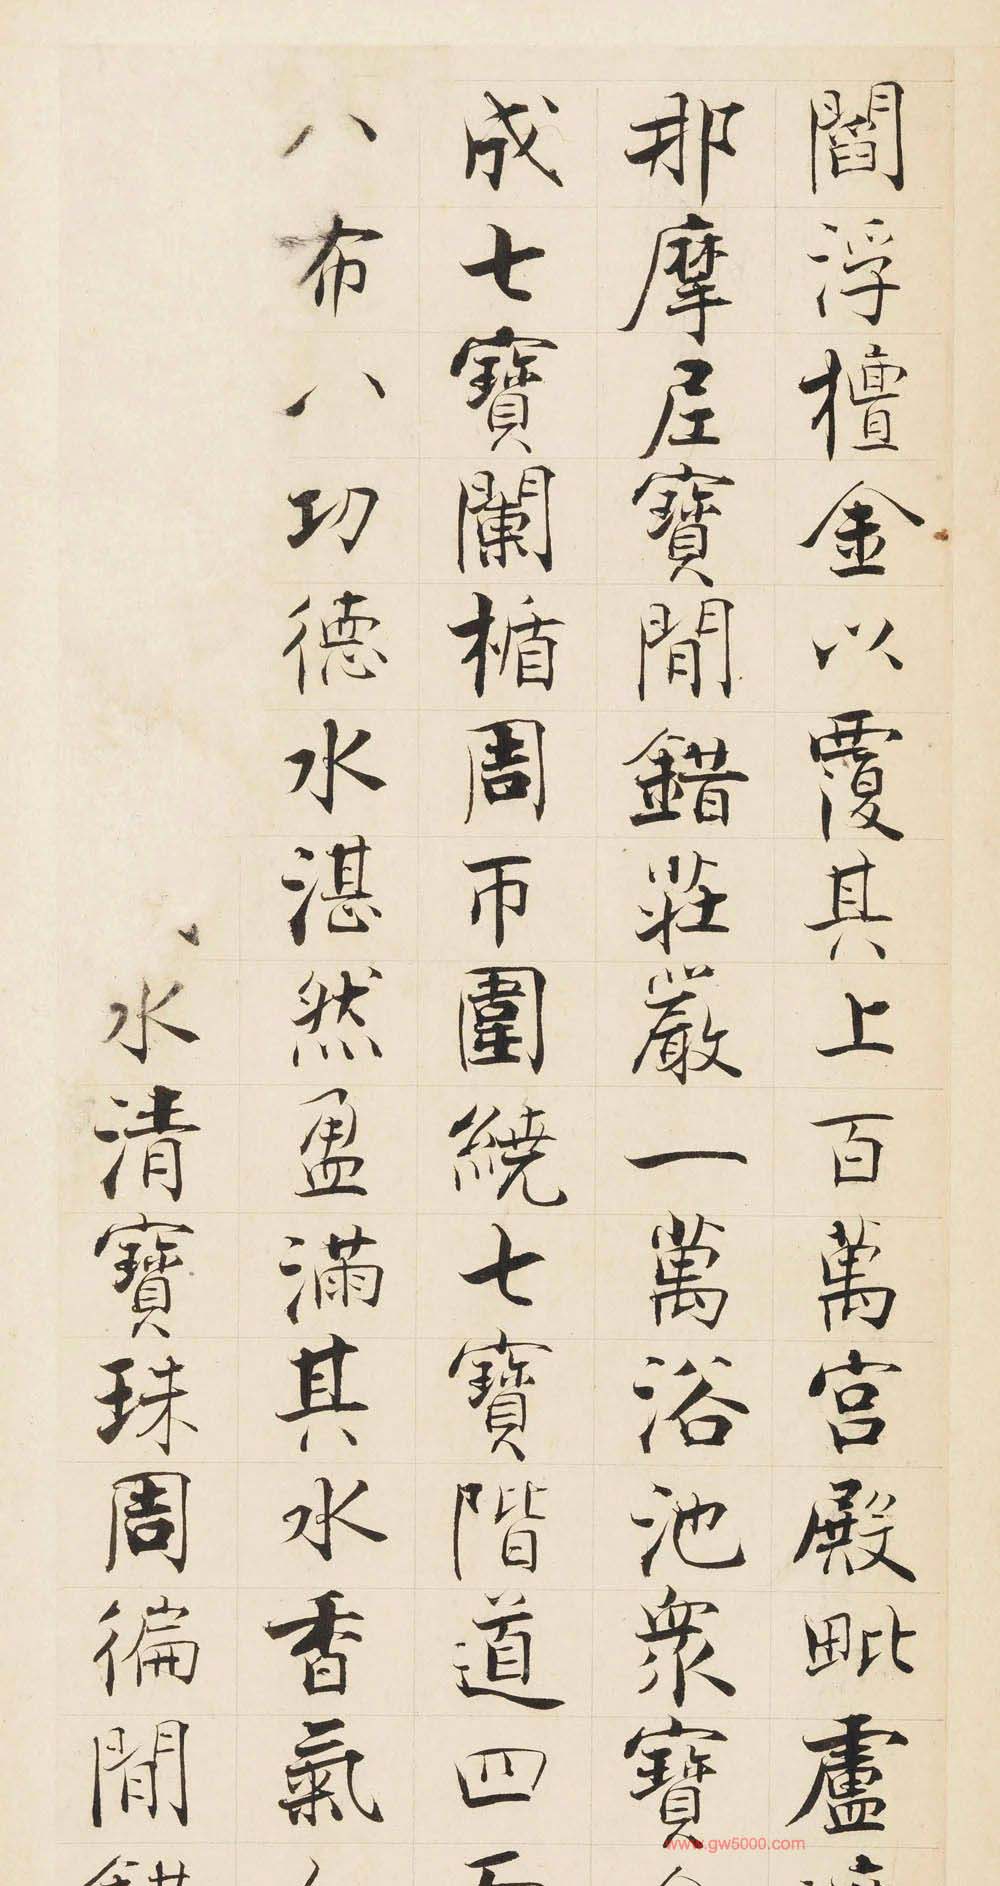 閻浮檀金以覆其上百萬宮殿毗盧
那摩尼寶間錯莊嚴一萬浴池衆寶
成七寶闌楯周帀圍繞七寶階道四
八布八功德水湛然盈滿其水香氣
水清寶珠周徧間
www.gw5000.com